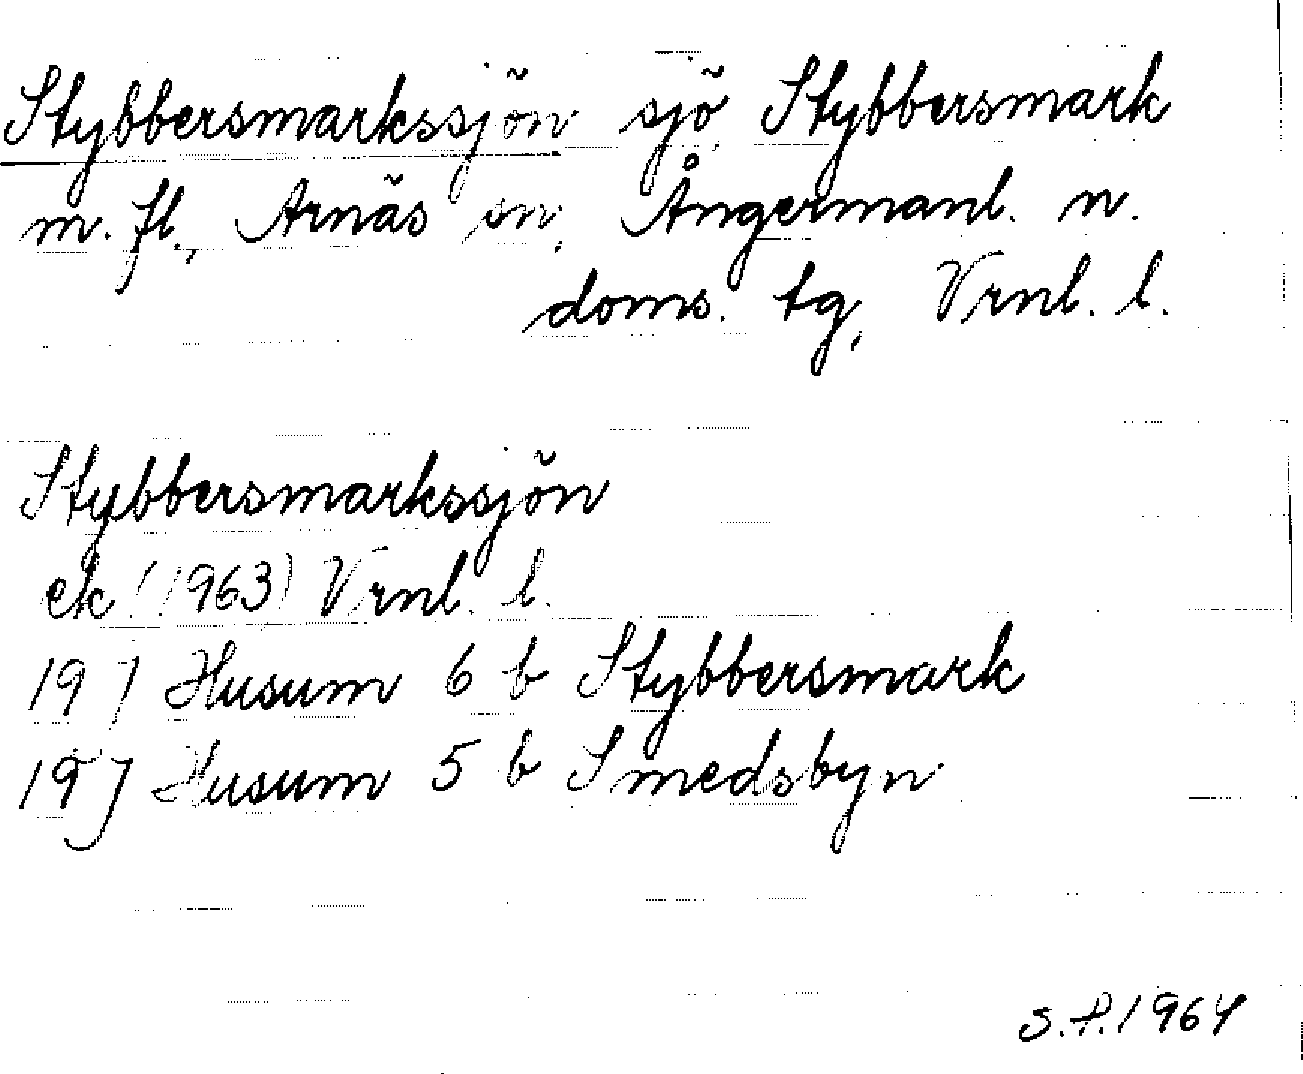 Stybbersmarkssjön sjö, Stybbersmark
m. fl., Arnäs sn, Ångermanl. n.
doms. tg, Vrnl. l.
Stybbersmarkssjön
ek (1963) Vrnl. l.
19 J Husum 6 b Stybbersmark
19 J Husum 5 b Smedsbyn
S.P. 1964